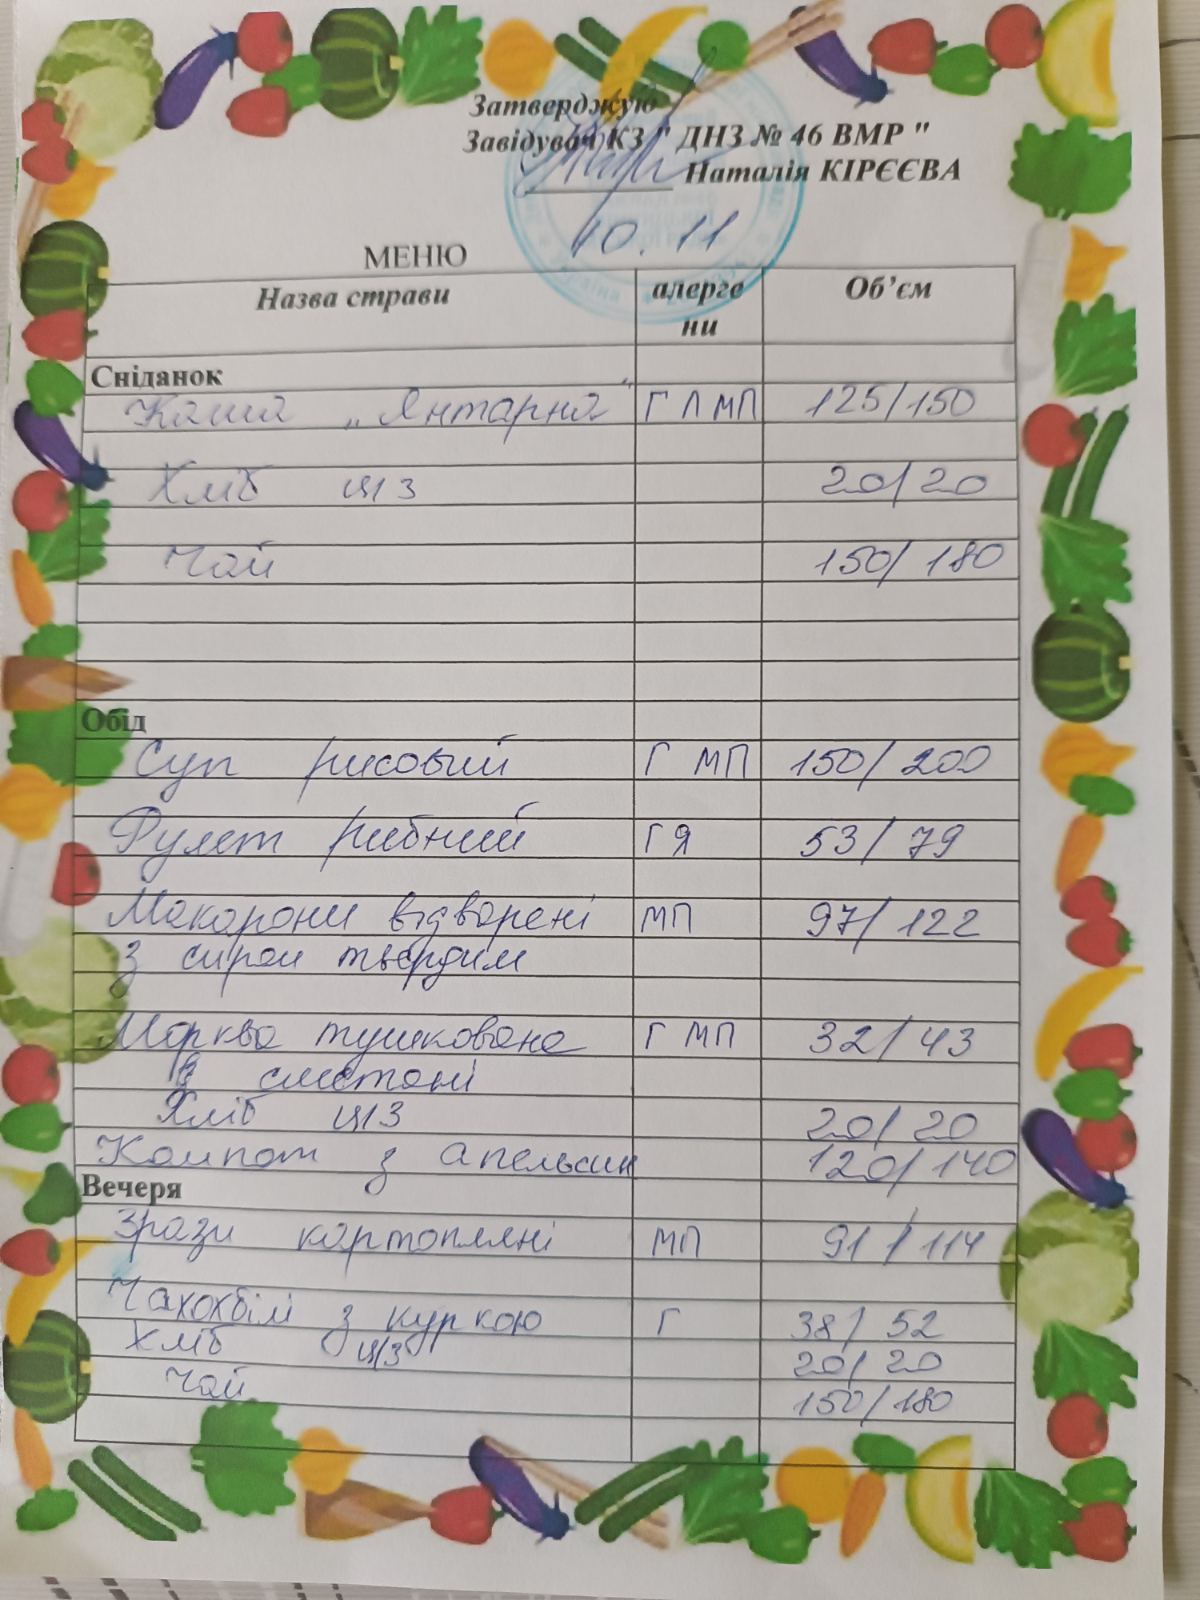 Затверджую
Завідувач КЗ " ДНЗ № 46 ВМР "
Наталія КІРЄЄВА
10.11
МЕНЮ
Назва страви алерге ни Об’єм
Сніданок
Каша „Янтарна" Г Л МП 125/150
Хліб ц/з 20/20
Чай 150/180
Обід
Суп рисовый Г МП 150/200
Рулет рибний Г Я 53/79
Макарони відварені МП 97/122
з сиром твердим
Морква тушкована Г МП 32/43
в сметані
Хліб ц/з 20/20
Компот з апельсин 120/140
Вечеря
Зрази картопляні МП 91/114
Чахохбілі з куркою Г 38/52
Хліб ц/з 20/20
Чай 150/180